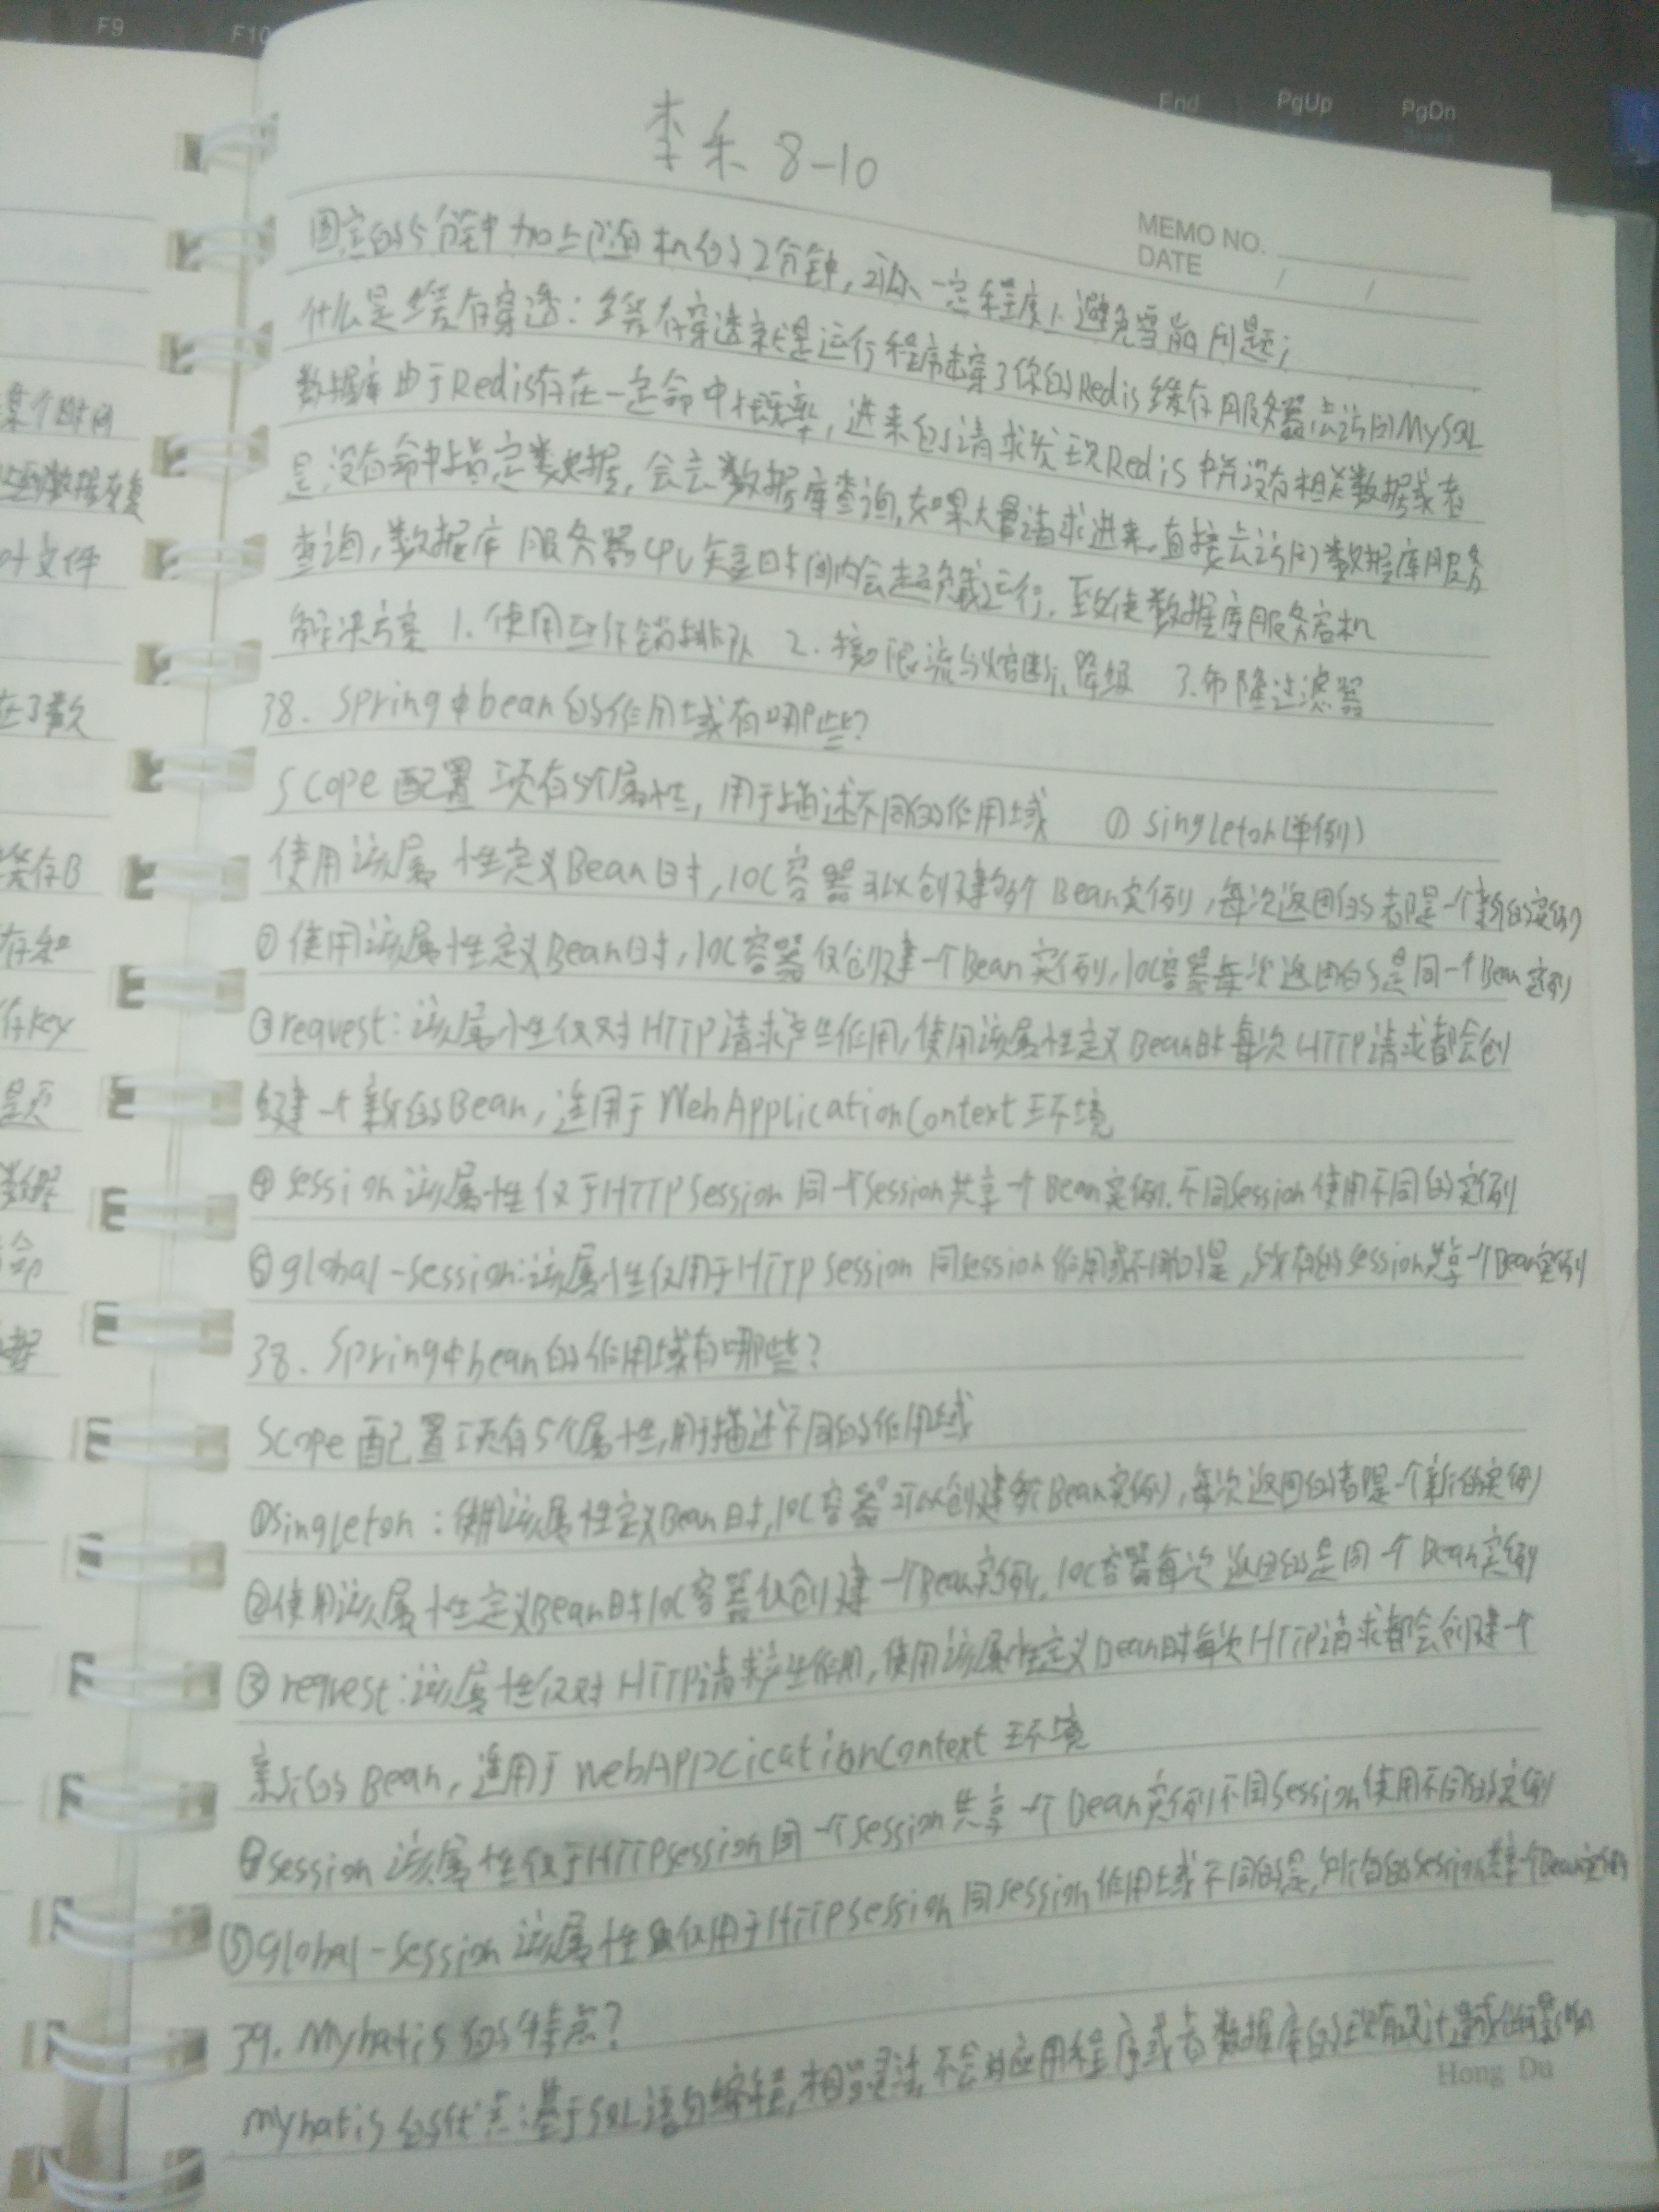 F9
F10
End
PgUp
PgDn
李禾 8-10
MEMO NO.
DATE / /
固定的5分钟中加上随机的2分钟，可以一定程度上避免雪崩问题；
什么是缓存穿透：缓存穿透就是运行程序击穿了你的Redis缓存服务器，去访问MySQL
数据库由于Redis存在一定命中概率，进来的请求发现Redis中并没有相关数据或者
是没有命中指定类数据，会去数据库查询，如果大量请求进来，直接去访问数据库服务
查询，数据库服务器CPU短时间内会超负载运行，致使数据库服务宕机
解决方案 1.使用互斥锁排队 2.接口限流与熔断、降级 3.布隆过滤器
38. Spring中bean的作用域有哪些？
Scope 配置项有5个属性，用于描述不同的作用域 ① singleton(单例)
使用该属性定义Bean时，IOC容器可以创建多个Bean实例，每次返回的都是一个新的实例
② 使用该属性定义Bean时，IOC容器仅创建一个Bean实例，IOC容器每次返回的是同一个Bean实例
③ request：该属性仅对HTTP请求产生作用，使用该属性定义Bean时每次HTTP请求都会创
建一个新的Bean，适用于WebApplicationContext环境
④ session 该属性仅于HTTP Session 同一个Session共享一个Bean实例.不同Session使用不同的实例
⑤ global-session：该属性仅用于HTTP Session 同session作用域不同的是，所有的session共享一个Bean实例
38. Spring中bean的作用域有哪些？
Scope 配置项有5个属性，用于描述不同的作用域
①singleton：使用该属性定义Bean时，IOC容器可以创建多个Bean实例，每次返回的都是一个新的实例
②使用该属性定义Bean时IOC容器仅创建一个Bean实例，IOC容器每次返回的是同一个Bean实例
③ request：该属性仅对HTTP请求产生作用，使用该属性定义Bean时每次HTTP请求都会创建一个
新的Bean，适用于WebAppcicationContext环境
④session 该属性仅于HTTPSession同一个Session共享一个Bean实例不同Session使用不同的实例
⑤global-session 该属性仅用于HTTPSession同session作用域不同的是，所有的session共享一个Bean实例
39. Mybatis的特点？
Mybatis的优点：基于SQL语句编程，相当灵活，不会对应用程序或者数据库的现有设计造成任何影响
Hong Du
某个时间
数据恢复
文件
在了数
缓存B
存和
存key
是否
数据